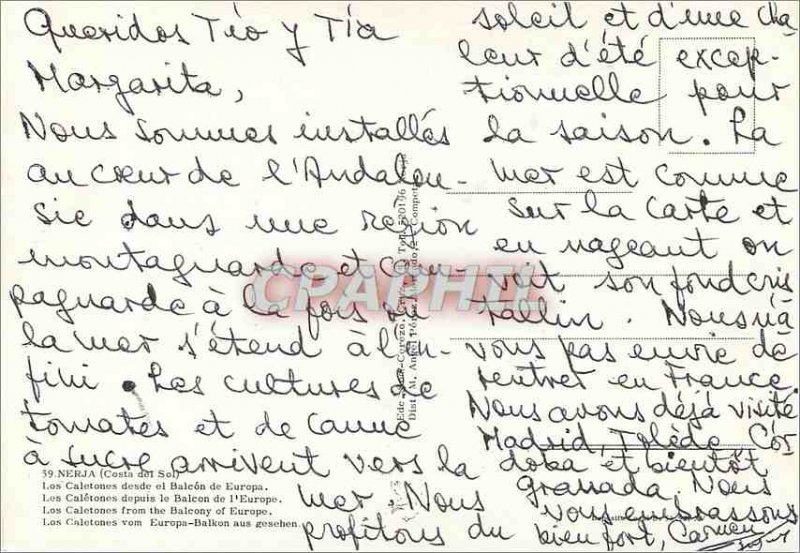 Queridos Tío y Tía
Margarita,
Nous sommes installés
au cœur de l'Andalou-
sie dans une région
montagnarde et cam-
pagnarde à la fois où
la mer s'étend à l'in-
fini. Les cultures de
tomates et de canne
à sucre arrivent vers la
mer. Nous
profitons du
soleil et d'une cha
leur d'été excep-
tionnelle pour
la saison. La
mer est comme
sur la carte et
en nageant on
voit son fond cris
tallin. Nous n'a
vons pas envie de
rentrer en France.
Nous avons déjà visité
Madrid, Tolède, Cor
doba et bientôt
Granada. Nous
vous embrassons
bien fort, Carmen
59. NERJA (Costa del Sol)
Los Caletones desde el Balcón de Europa.
Les Calètones depuis le Balcon de l'Europe.
Los Caletones from the Balcony of Europe.
Los Caletones vom Europa-Balkon aus gesehen.
Dist. M. Angel
CPAPHIL